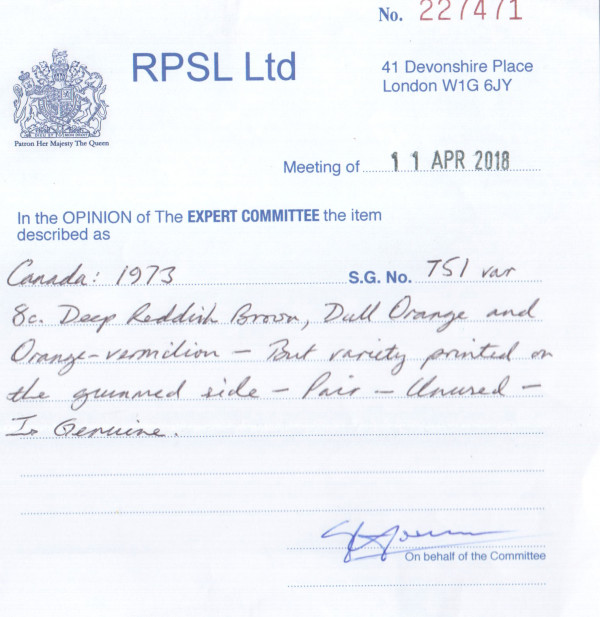 No. 227471
RPSL Ltd
41 Devonshire Place
London W1G 6JY
Patron Her Majesty The Queen
Meeting of 11 APR 2018
In the OPINION of The EXPERT COMMITTEE the item
described as
Canada: 1973 S.G. No. 751 var
8c. Deep Reddish Brown, Dull Orange and
Orange-vermilion - But variety printed on
the gummed side - Pair - Unused -
Is Genuine.
On behalf of the Committee